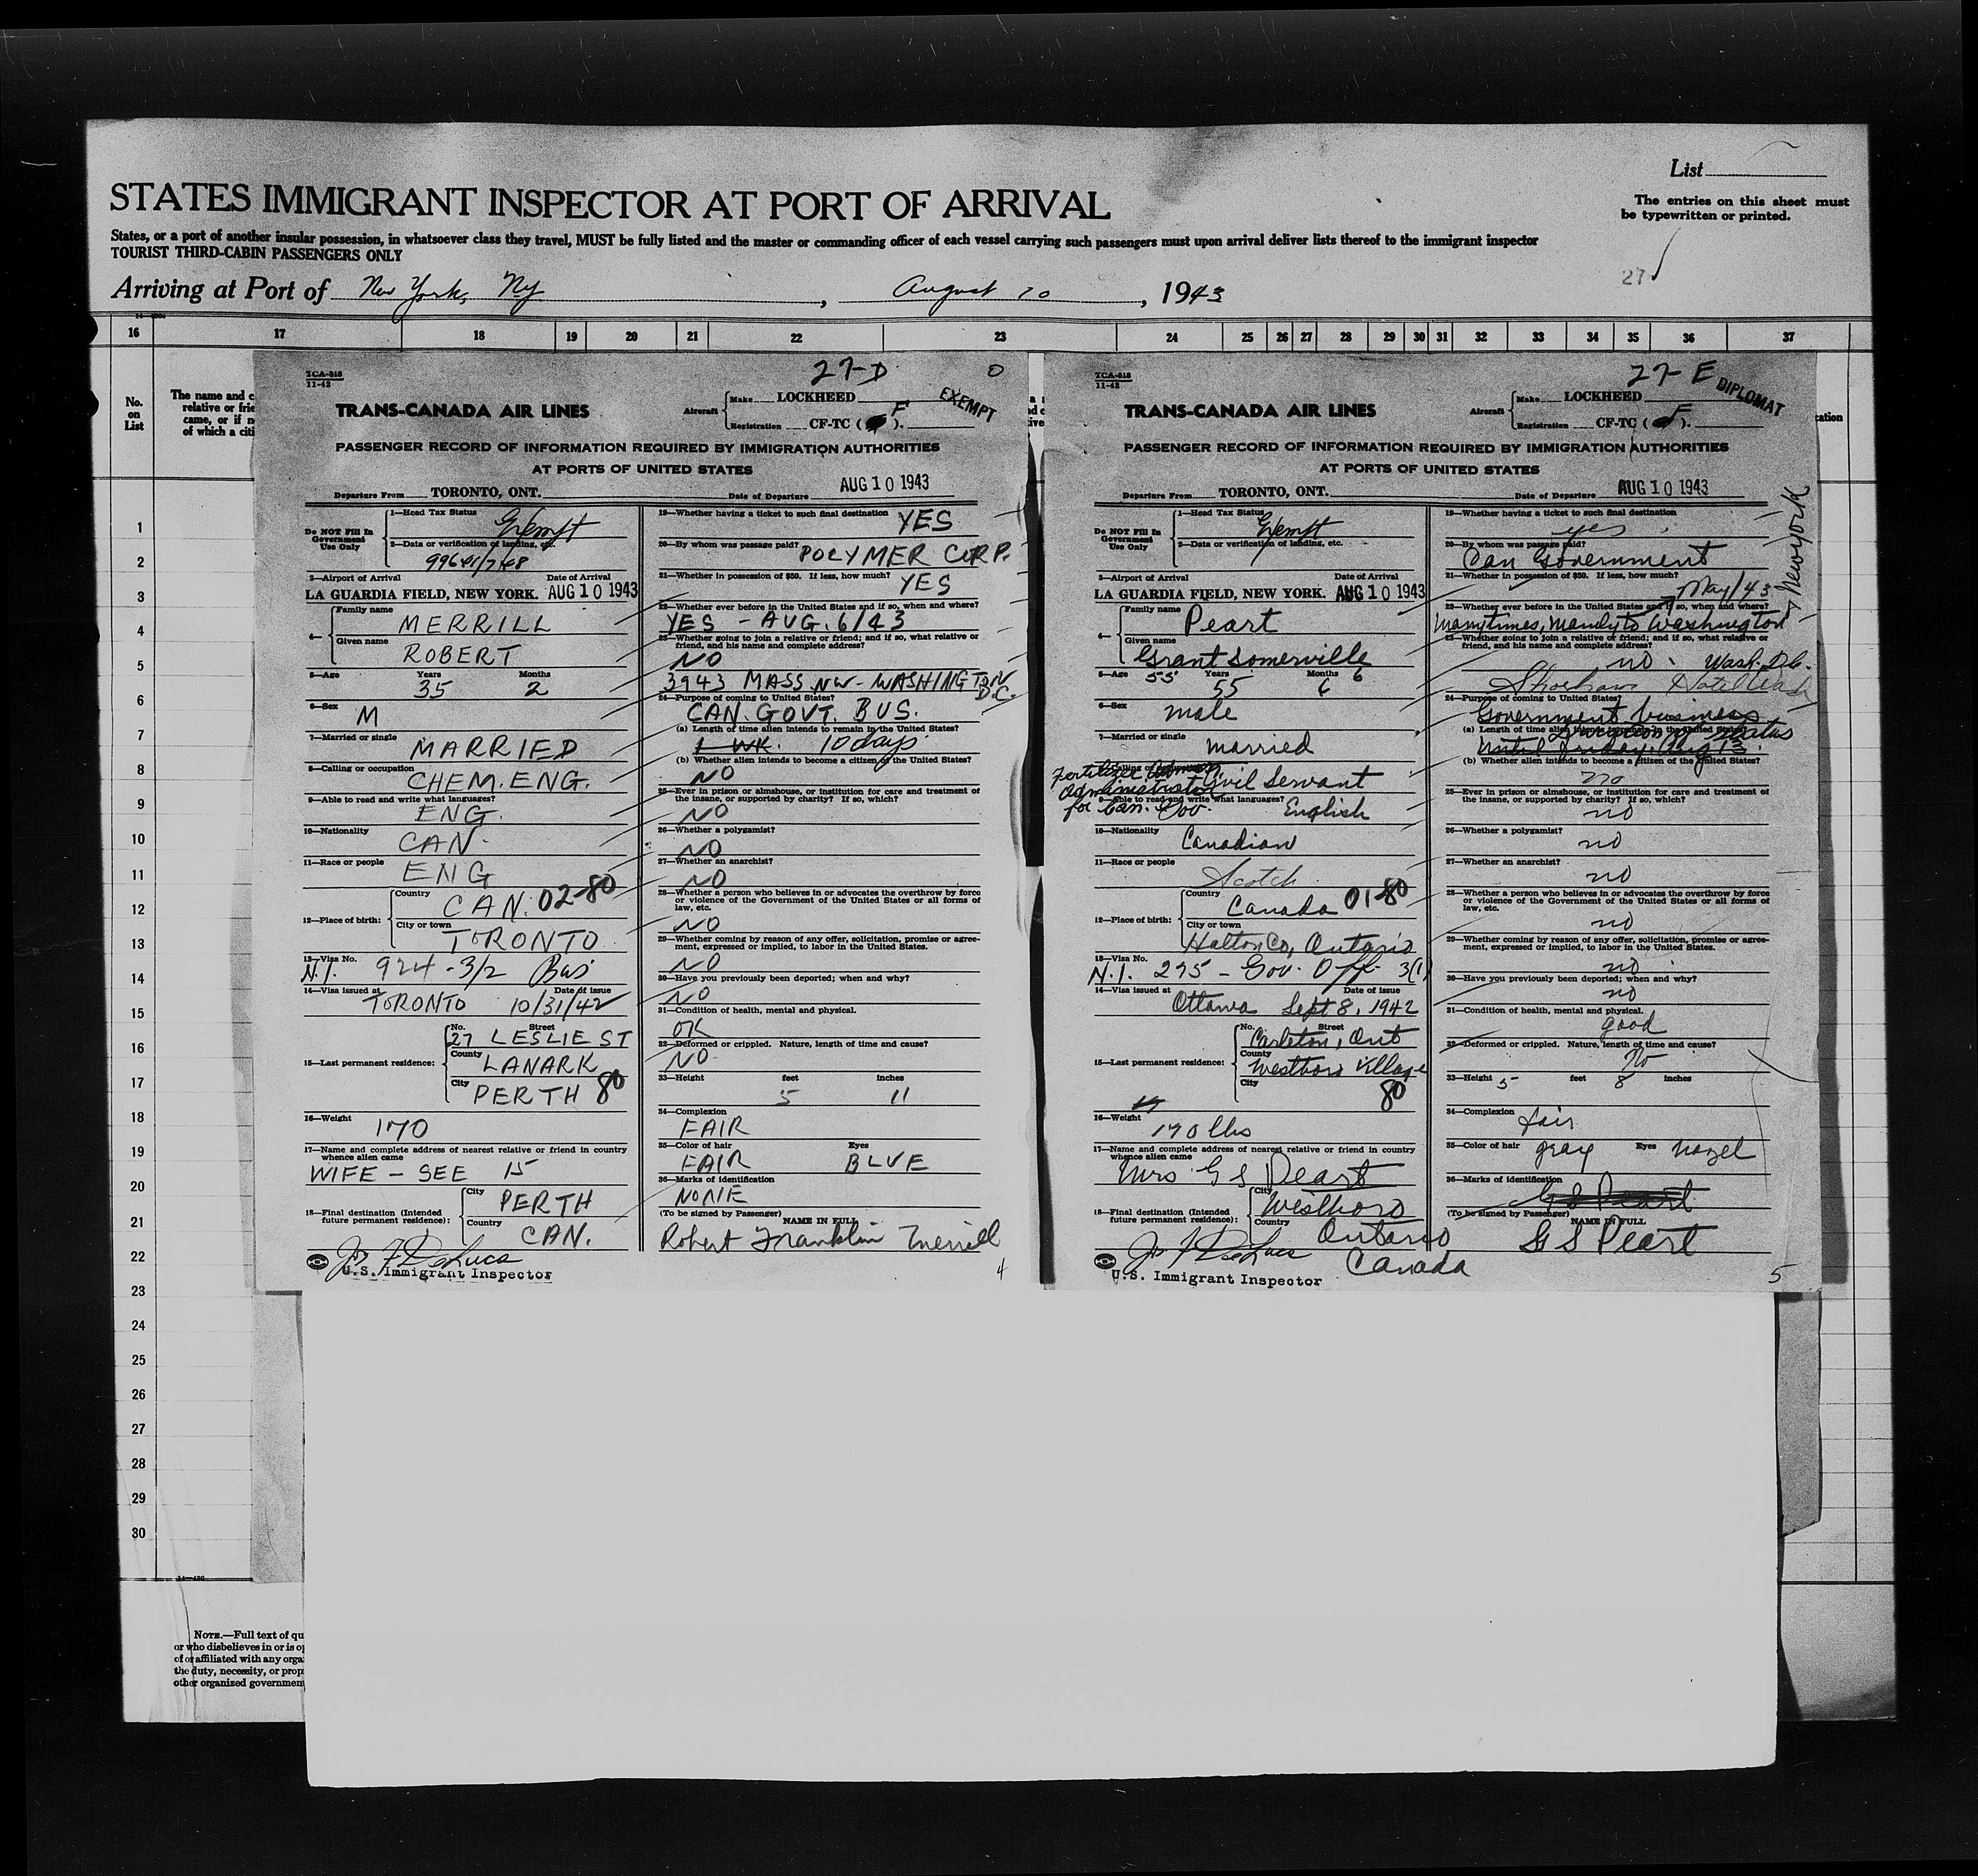 List
STATES IMMIGRANT INSPECTOR AT PORT OF ARRIVAL
The entries on this sheet must
be typewritten or printed.
States, or a port of another insular possession, in whatsoever class they travel, MUST be fully listed and the master or commanding officer of each vessel carrying such passengers must upon arrival deliver lists thereof to the immigrant inspector
TOURIST THIRD-CABIN PASSENGERS ONLY
27
Arriving at Port of New York, Ny, August 10, 1943
16 17 18 19 20 21 22 23 24 25 26 27 28 29 30 31 32 33 34 35 36 37
No.
on
List
The name and c
relative or frie
came, or if n
of which a citi
1
2
3
4
5
6
7
8
9
10
11
12
13
14
15
16
17
18
19
20
21
22
23
24
25
26
27
28
29
30
NOTE.—Full text of qu
or who disbelieves in or is op
of or affiliated with any orga
the duty, necessity, or prop
other organized government
TCA-818
11-42
27-D
0
TRANS-CANADA AIR LINES
Aircraft
Make LOCKHEED
EXEMPT
Registration CF-TC ( F ).
PASSENGER RECORD OF INFORMATION REQUIRED BY IMMIGRATION AUTHORITIES
AT PORTS OF UNITED STATES
Departure From TORONTO, ONT. Date of Departure AUG 10 1943
Do NOT Fill In
Government
Use Only
1—Head Tax Status Exempt
2—Data or verification of landing, etc.
99641/7148
3—Airport of Arrival Date of Arrival
LA GUARDIA FIELD, NEW YORK. AUG 10 1943
4—
Family name MERRILL
Given name ROBERT
5—Age Years Months
35 2
6—Sex M
7—Married or single MARRIED
8—Calling or occupation CHEM. ENG.
9—Able to read and write what languages?
ENG.
10—Nationality CAN.
11—Race or people ENG
12—Place of birth:
Country CAN. 02-80
City or town TORONTO
13—Visa No.
N.I. 924 - 3/2 Bus
14—Visa issued at Date of issue
TORONTO 10/31/42
15—Last permanent residence:
No. Street
27 LESLIE ST
County LANARK
City PERTH 80
16—Weight 170
17—Name and complete address of nearest relative or friend in country
whence alien came
WIFE - SEE 15
18—Final destination (Intended
future permanent residence):
City PERTH
Country CAN.
Jos F DeLuca
U.S. Immigrant Inspector
19—Whether having a ticket to such final destination YES
20—By whom was passage paid? POLYMER CORP.
21—Whether in possession of $50. If less, how much? YES
22—Whether ever before in the United States and if so, when and where?
YES - AUG. 6/43
23—Whether going to join a relative or friend; and if so, what relative or
friend, and his name and complete address?
NO
3943 MASS. NW - WASHINGTON
D.C.
24—Purpose of coming to United States?
CAN. GOVT. BUS.
(a) Length of time alien intends to remain in the United States?
1 WK. 10 days
(b) Whether alien intends to become a citizen of the United States?
NO
25—Ever in prison or almshouse, or institution for care and treatment of
the insane, or supported by charity? If so, which?
NO
26—Whether a polygamist?
NO
27—Whether an anarchist?
NO
28—Whether a person who believes in or advocates the overthrow by force
or violence of the Government of the United States or all forms of
law, etc.
NO
29—Whether coming by reason of any offer, solicitation, promise or agree-
ment, expressed or implied, to labor in the United States.
NO
30—Have you previously been deported; when and why?
NO
31—Condition of health, mental and physical.
OK
32—Deformed or crippled. Nature, length of time and cause?
NO
33—Height feet inches
5 11
34—Complexion
FAIR
35—Color of hair Eyes
FAIR BLUE
36—Marks of identification
NONE
(To be signed by Passenger)
NAME IN FULL
Robert Franklin Merrill
4
TCA-818
11-42
27-E
TRANS-CANADA AIR LINES
Aircraft
Make LOCKHEED
DIPLOMAT
Registration CF-TC ( F ).
ation
PASSENGER RECORD OF INFORMATION REQUIRED BY IMMIGRATION AUTHORITIES
AT PORTS OF UNITED STATES
Departure From TORONTO, ONT. Date of Departure AUG 10 1943
Do NOT Fill In
Government
Use Only
1—Head Tax Status Exempt
2—Data or verification of landing, etc.
3—Airport of Arrival Date of Arrival
LA GUARDIA FIELD, NEW YORK. AUG 10 1943
4—
Family name Peart
Given name Grant Somerville
5—Age 55 Years Months 6
55 6
6—Sex male
7—Married or single married
8—Calling or occupation Civil Servant
Fertilizer
Administrator
for Can. Gov.
9—Able to read and write what languages?
English
10—Nationality Canadian
11—Race or people Scotch
12—Place of birth:
Country Canada 01-80
City or town
Halton Co, Ontario
13—Visa No.
N.I. 295 - Gov. Off 3(1)
14—Visa issued at Date of issue
Ottawa Sept 8, 1942
15—Last permanent residence:
No. Street
Carleton, Ont
County
Westboro Village
City 80
16—Weight 190 lbs
17—Name and complete address of nearest relative or friend in country
whence alien came
Mrs G S Peart
18—Final destination (Intended
future permanent residence):
City Westboro
Country Ontario
Canada
Jos F DeLuca
U.S. Immigrant Inspector
19—Whether having a ticket to such final destination
yes
20—By whom was passage paid?
Can Government
21—Whether in possession of $50. If less, how much?
May/43
22—Whether ever before in the United States and if so, when and where?
Many times, mainly to Washington
& New York
23—Whether going to join a relative or friend; and if so, what relative or
friend, and his name and complete address?
no. Wash. D.C.
Shoreham Hotel Wash
24—Purpose of coming to United States?
Government business
(a) Length of time alien intends to remain in the United States?
Duration of status
Until Friday, Aug 13.
(b) Whether alien intends to become a citizen of the United States?
no
25—Ever in prison or almshouse, or institution for care and treatment of
the insane, or supported by charity? If so, which?
no
26—Whether a polygamist?
no
27—Whether an anarchist?
no
28—Whether a person who believes in or advocates the overthrow by force
or violence of the Government of the United States or all forms of
law, etc.
no
29—Whether coming by reason of any offer, solicitation, promise or agree-
ment, expressed or implied, to labor in the United States.
no
30—Have you previously been deported; when and why?
no
31—Condition of health, mental and physical.
good
32—Deformed or crippled. Nature, length of time and cause?
No
33—Height 5 feet 8 inches
34—Complexion
fair
35—Color of hair gray Eyes hazel
36—Marks of identification
G S Peart
(To be signed by Passenger)
NAME IN FULL
G S Peart
5